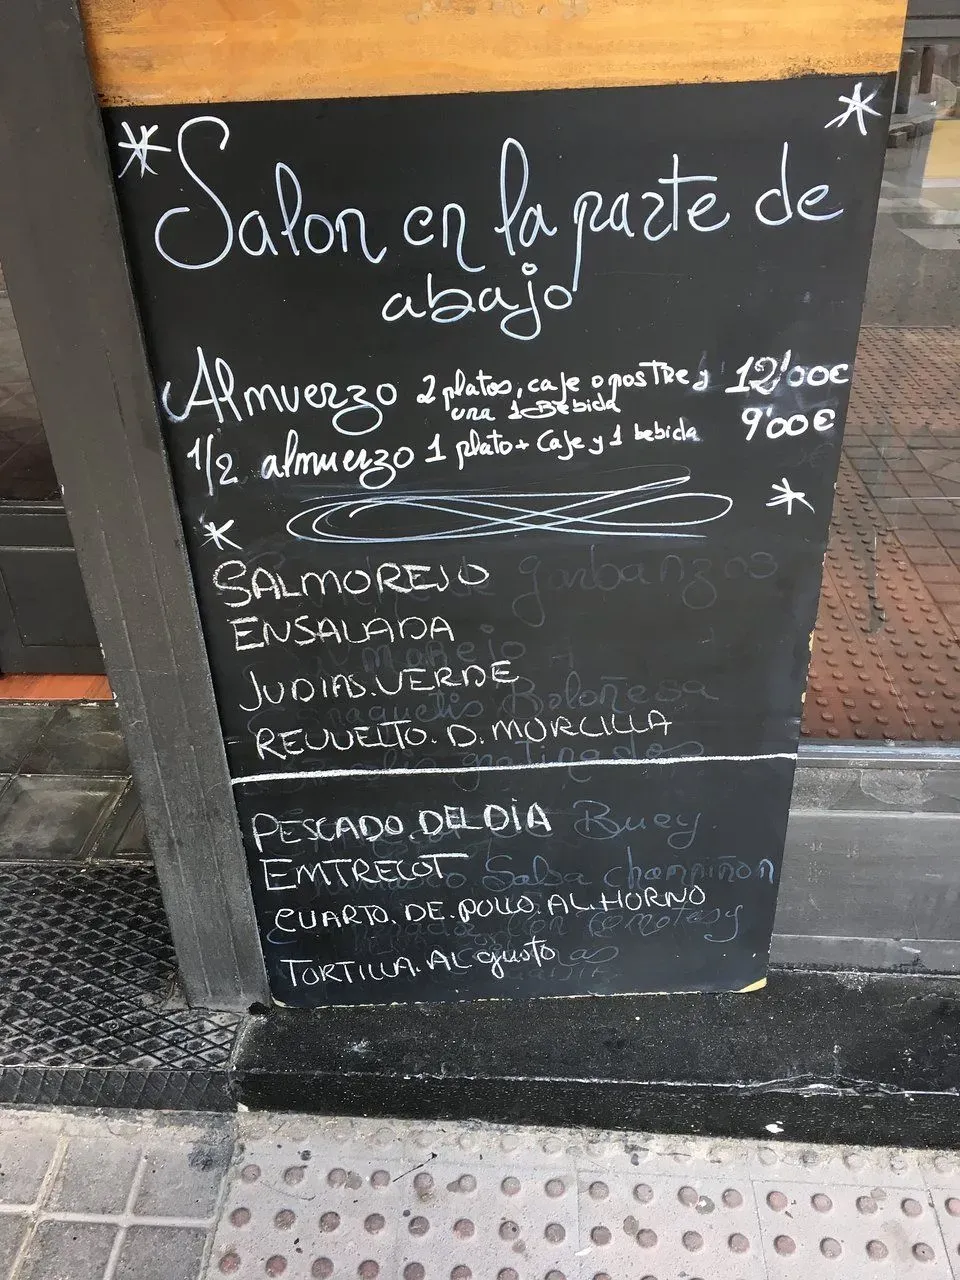 Salon en la parte de
abajo
Almuerzo 2 platos, cafe o postre y 12'00€
una 1 Bebida
1/2 almuerzo 1 plato + Cafe y 1 bebida 9'00€
SALMOREJO garbanzos
ENSALADA
JUDIAS.VERDE
Boloñesa
REVUELTO. D. MORCILLA
gratinados
PESCADO DEL DÍA Buey
EMTRECOT Salsa champiñon
CUARTO. DE. POLLO. AL. HORNO
TORTILLA. AL gusto